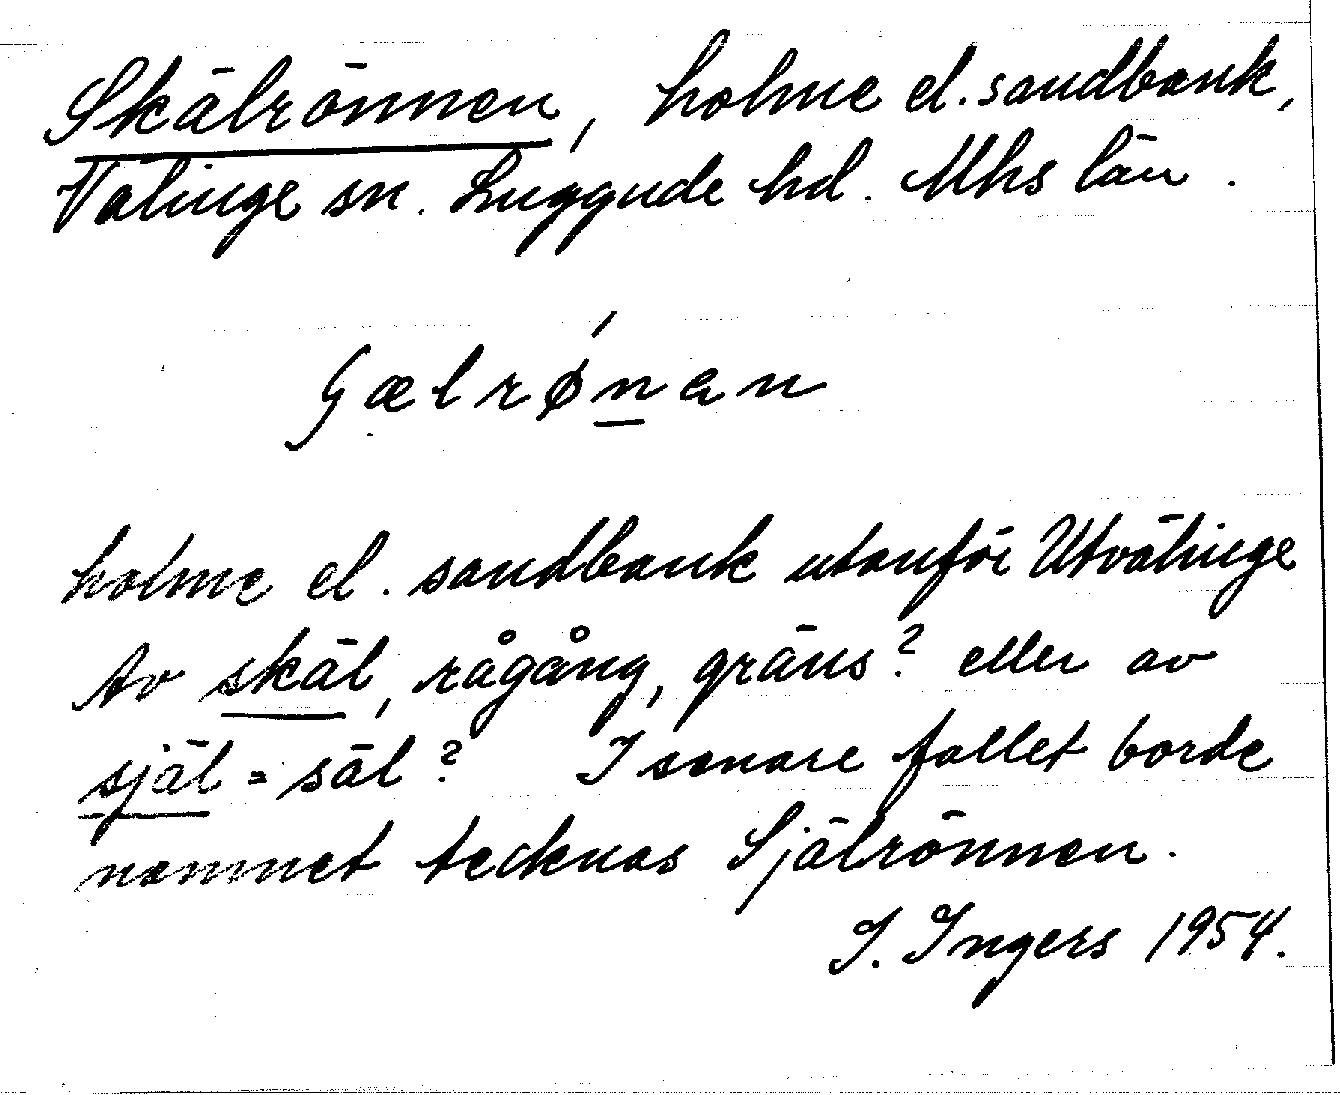 Skälrönnen, holme el. sandbank,
Välinge sn. Luggude hd. Mhs län.
ʃælrø´nan
holme el. sandbank utanför Utvälinge
Av skäl, rågång, gräns? eller av
själ = säl? I senare fallet borde
namnet tecknas Själrönnen.
I. Ingers 1954.